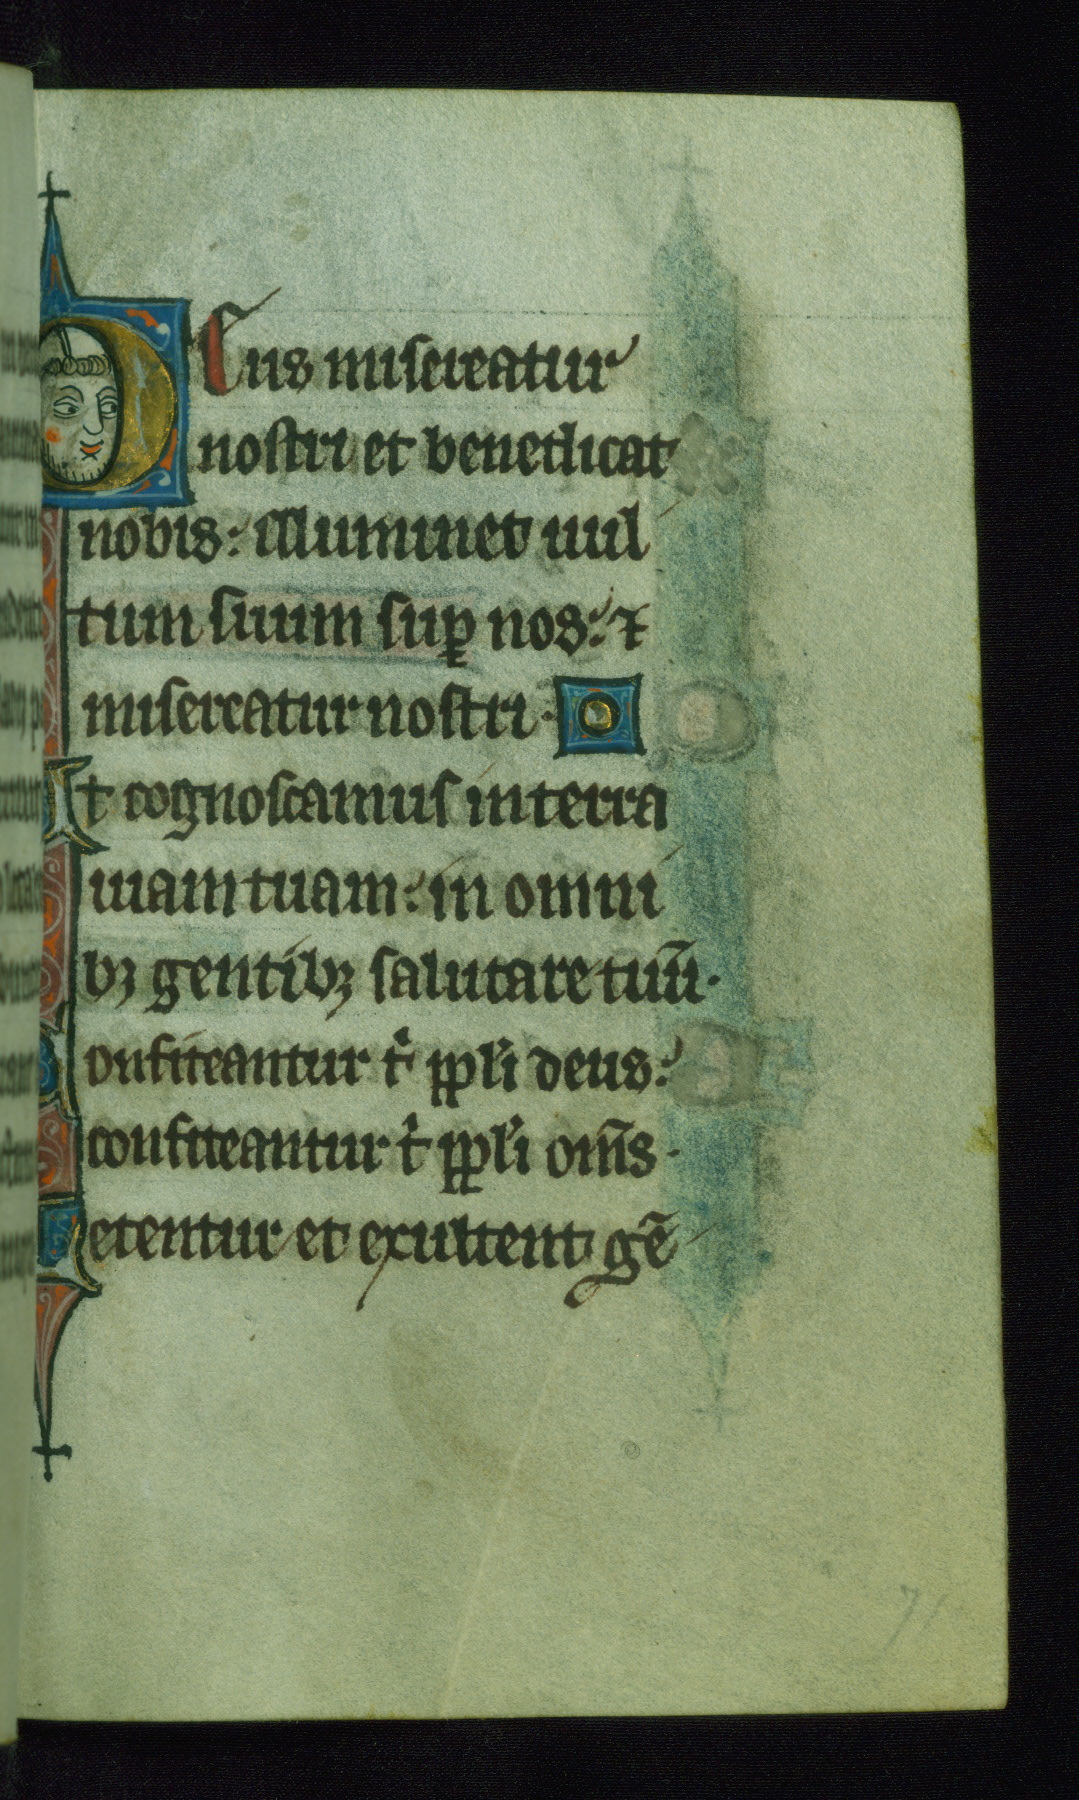 Deus misereatur
nostri et benedicat
nobis: illuminet uul
tum suum suꝑ nos: ⁊
misereatur nostri·
Ut cognoscamus in terra
uiam tuam: in omni
bꝫ gentibꝫ salutare tuū·
Confiteantur tⁱ ppl̓i deus:
confiteantur tⁱ ppl̓i om̄s·
Letentur et exultent gē
71